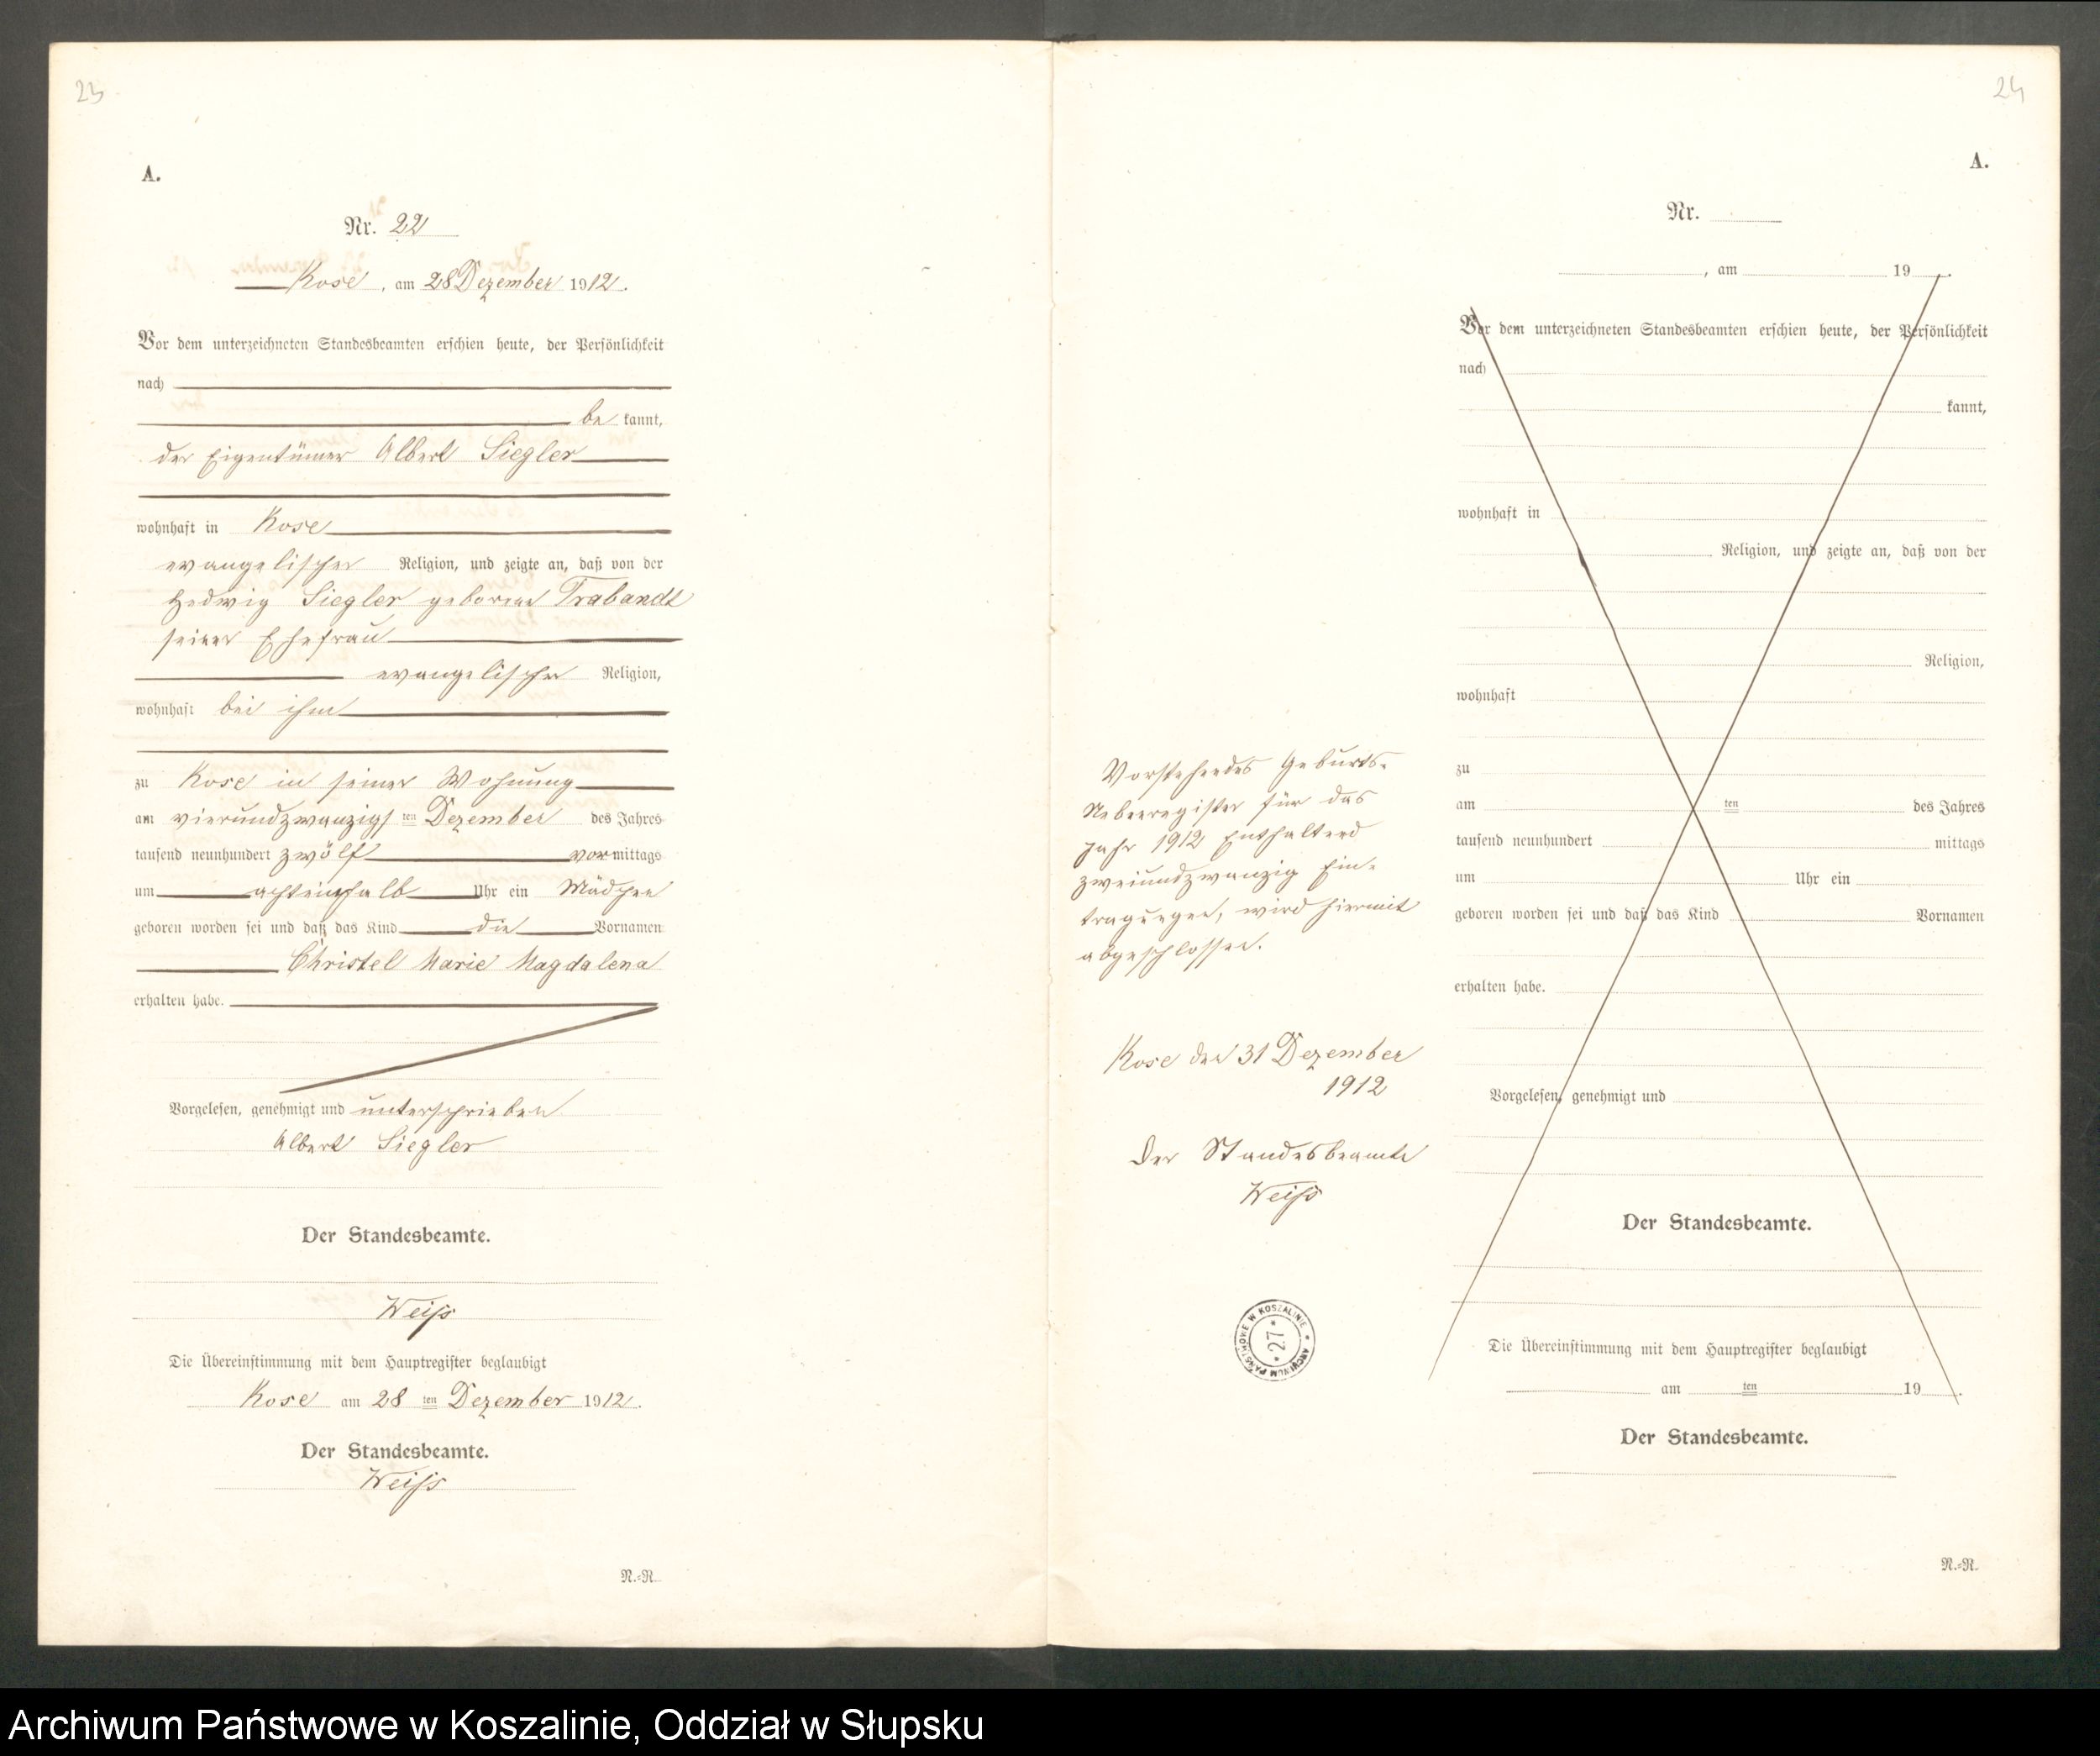 23
A.
Nr. 22
Kose, am 28 Dezember 1912.
Vor dem unterzeichneten Standesbeamten erschien heute, der Persönlichkeit
nach
be kannt,
der Eigentümer Albert Siegler
wohnhaft in Kose
evangelischer Religion, und zeigte an, daß von der
Hedwig Siegler geborene Trabandt
seiner Ehefrau
evangelischer Religion,
wohnhaft bei ihm
zu Kose in seiner Wohnung
am vierundzwanzigs ten Dezember des Jahres
tausend neunhundert zwölf vormittags
um achteinhalb Uhr ein Mädchen
geboren worden sei und daß das Kind die Vornamen
Christel Marie Magdalena
erhalten habe.
Vorgelesen, genehmigt und unterschrieben
Albert Siegler
Der Standesbeamte.
Weiß
Die Übereinstimmung mit dem Hauptregister beglaubigt
Kose am 28 ten Dezember 1912.
Der Standesbeamte.
Weiß
N.=R.
24
A.
Nr.
, am 19 .
Vor dem unterzeichneten Standesbeamten erschien heute, der Persönlichkeit
nach
kannt,
wohnhaft in
Religion, und zeigte an, daß von der
Religion,
wohnhaft
zu
am ten des Jahres
tausend neunhundert mittags
um Uhr ein
geboren worden sei und daß das Kind Vornamen
erhalten habe.
Vorgelesen, genehmigt und
Der Standesbeamte.
Die Übereinstimmung mit dem Hauptregister beglaubigt
am ten 19 .
Der Standesbeamte.
N.=R.
Vorstehendes Geburts-
Nebenregister für das
Jahr 1912 Enthaltend
zweiundzwanzig Ein-
tragungen, wird hiermit
abgeschlossen.
Kose den 31 Dezember
1912
Der Standesbeamte
Weiß
ARCHIWUM PAŃSTWOWE W KOSZALINIE
* 27 *
Archiwum Państwowe w Koszalinie, Oddział w Słupsku